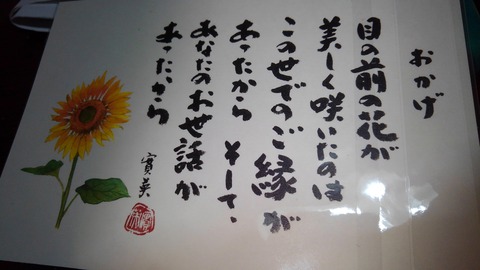 おかげ
目の前の花が
美しく咲いたのは
この世でのご縁が
あったから そして、
あなたのお世話が
あったから
寳美